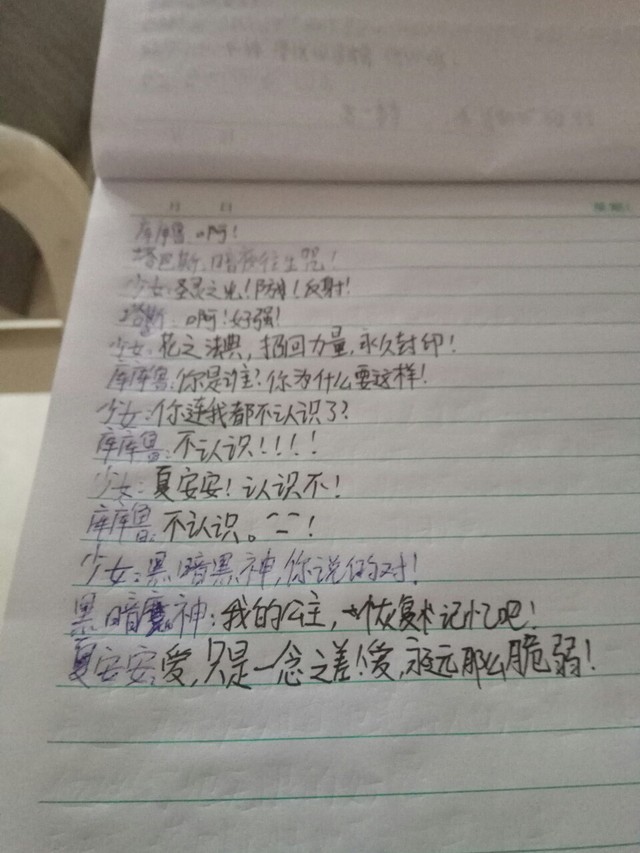 月 日 星期
库库鲁:啊!
塔巴斯:暗夜往生咒!
少女:圣灵之光!防御!反射!
塔巴斯:啊!好强!
少女:花之法典,招回力量,永久封印!
库库鲁:你是谁?你为什么要这样!
少女:你连我都不认识了?
库库鲁:不认识!!!!
少女:夏安安!认识不!
库库鲁:不认识。!
少女:黑暗黑神,你说的对!
黑暗魔神:我的公主,恢复术记忆吧!
夏安安:爱,只是一念之差!爱,永远那么脆弱!